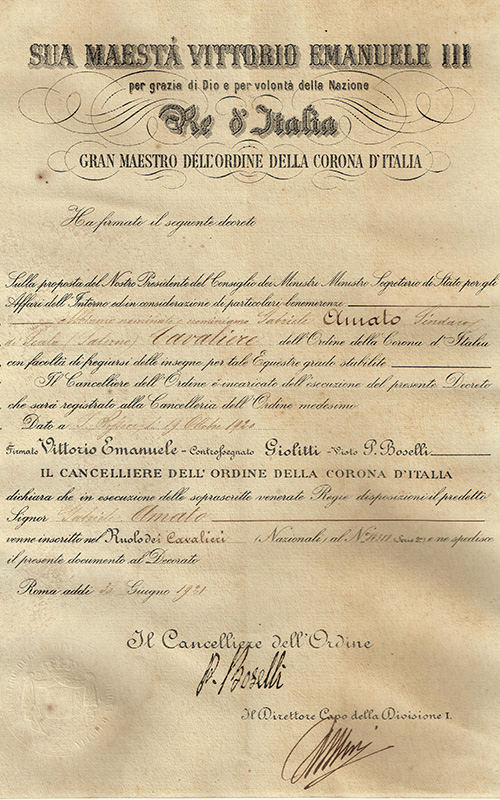 SUA MAESTÁ VITTORIO EMANUELE III
per grazia di Dio e per volontà della Nazione
Re d'Italia
GRAN MAESTRO DELL'ORDINE DELLA CORONA D'ITALIA
Ha firmato il seguente decreto
Sulla proposta del Nostro Presidente del Consiglio dei Ministri Ministro Segretario di Stato per gli
Affari dell'Interno ed in considerazione di particolari benemerenze
nominiamo Gabriele Amato Sindaco
di (Salerno) Cavaliere dell'Ordine della Corona d'Italia
con facoltà di fregiarsi delle insegne per tale Equestre grado stabilite
Il Cancelliere dell'Ordine è incaricato dell'esecuzione del presente Decreto
che sarà registrato alla Cancelleria dell'Ordine medesimo
Dato a S. Rossore li 19 Ottobre 1920
Firmato Vittorio Emanuele - Controfirmato Giolitti - Visto P. Boselli
IL CANCELLIERE DELL'ORDINE DELLA CORONA D'ITALIA
dichiara che in esecuzione delle soprascritte venerate Regie disposizioni il predetto
Signor Gabriele Amato
venne inscritto nel Ruolo dei Cavalieri (Nazionali) al N° e ne spedisce
il presente documento al Decorato
Roma addì Giugno 1921
Il Cancelliere dell'Ordine
P. Boselli
Il Direttore Capo della Divisione I.